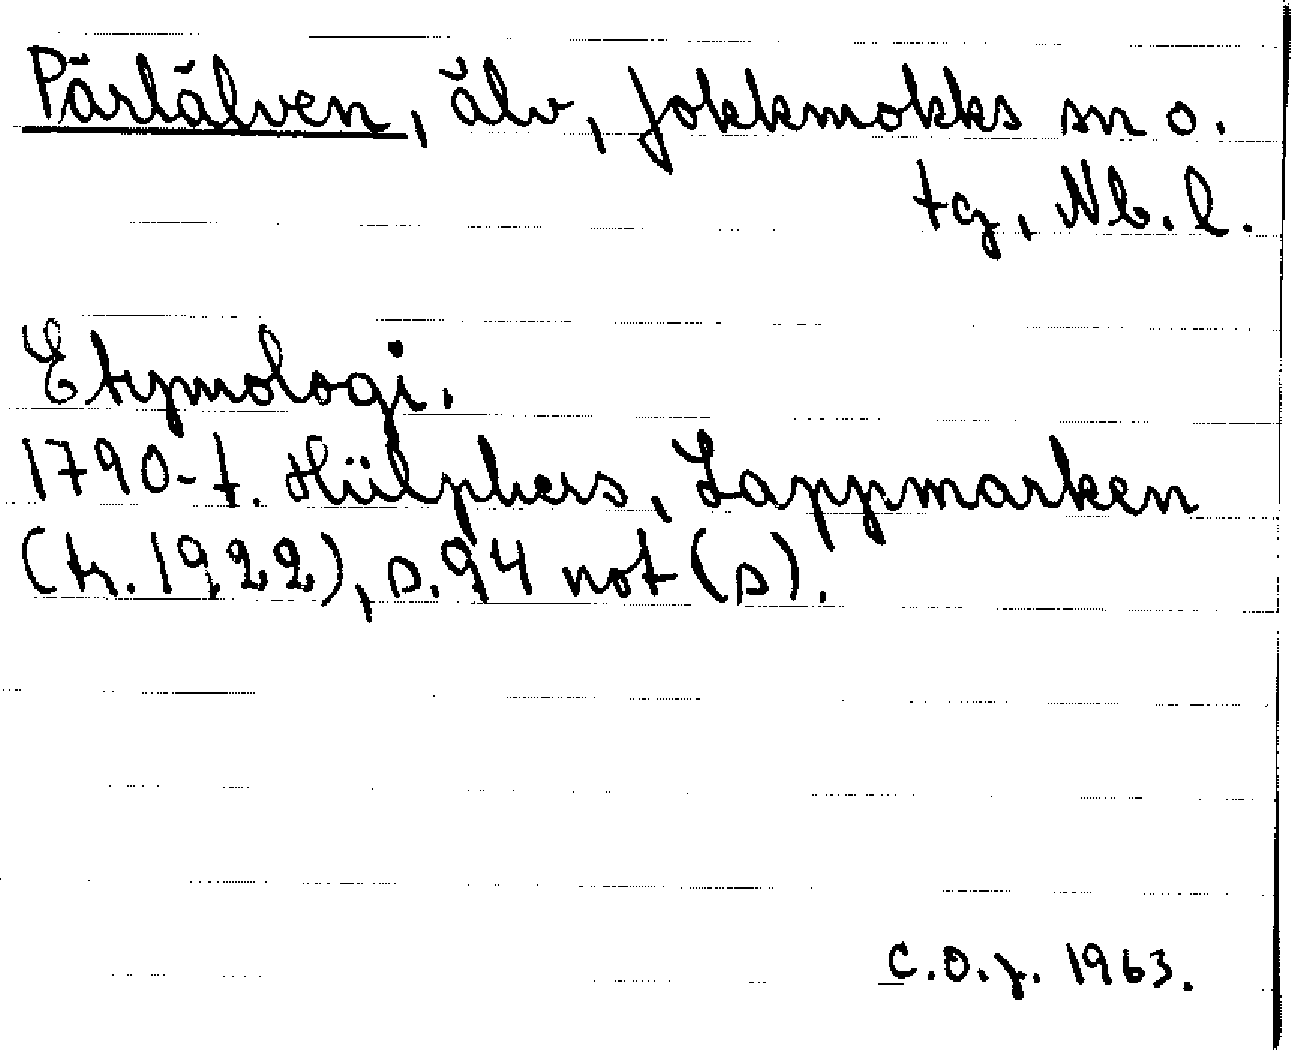 Pärlälven, älv, Jokkmokks sn o.
tg, Nb. l.
Etymologi.
1790-t. Hülphers, Lappmarken
(tr. 1922), s. 94 not (s).
C.O.J. 1963.